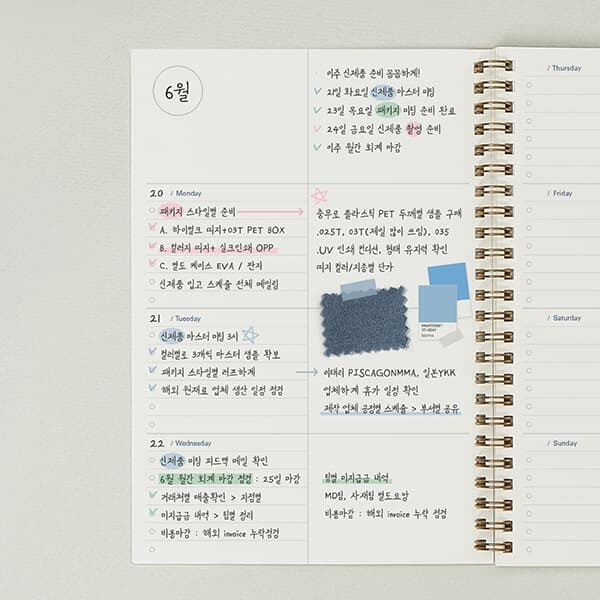 6월
이주 신제품 준비 꼼꼼하게!
21일 화요일 신제품 마스터 미팅
23일 목요일 패키지 미팅 준비 완료
24일 금요일 신제품 촬영 준비
이주 월간 회계 마감
20 / Monday
패키지 스타일별 준비
A. 하이컬크 띠지+03T PET BOX
B. 컬러지 띠지+ 실크인쇄 OPP
C. 별도 케이스 EVA / 판지
신제품 입고 스케쥴 전체 메일링
충무로 플라스틱 PET 두께별 샘플 구매
.025T, 03T(제일 많이 쓰임), 035
.UV 인쇄 컨디션, 형태 유지력 확인
띠지 컬러/지종별 단가
21 / Tuesday
신제품 마스터 미팅 3시
컬러별로 3개씩 마스터 샘플 확보
패키지 스타일별 러즈하게
해외 원재료 업체 생산 일정 점검
PANTONE
이태리 PISCAGONMMA, 일본YKK
업체하계 휴가 일정 확인
제작 업체 공정별 스케쥴 > 부서별 공유
22 / Wednesday
신제품 미팅 피드백 메일 확인
6월 월간 회계 마감 점검 : 25일 마감
거래처별 매출확인 > 지정별
미지급금 내역 > 팀별 정리
비용마감 : 해외 invoice 누락점검
팀별 미지급금 내역
MD팀, 사재팀 별도요망
비용마감 : 해외 invoice 누락 점검
/ Thursday
/ Friday
/ Saturday
/ Sunday